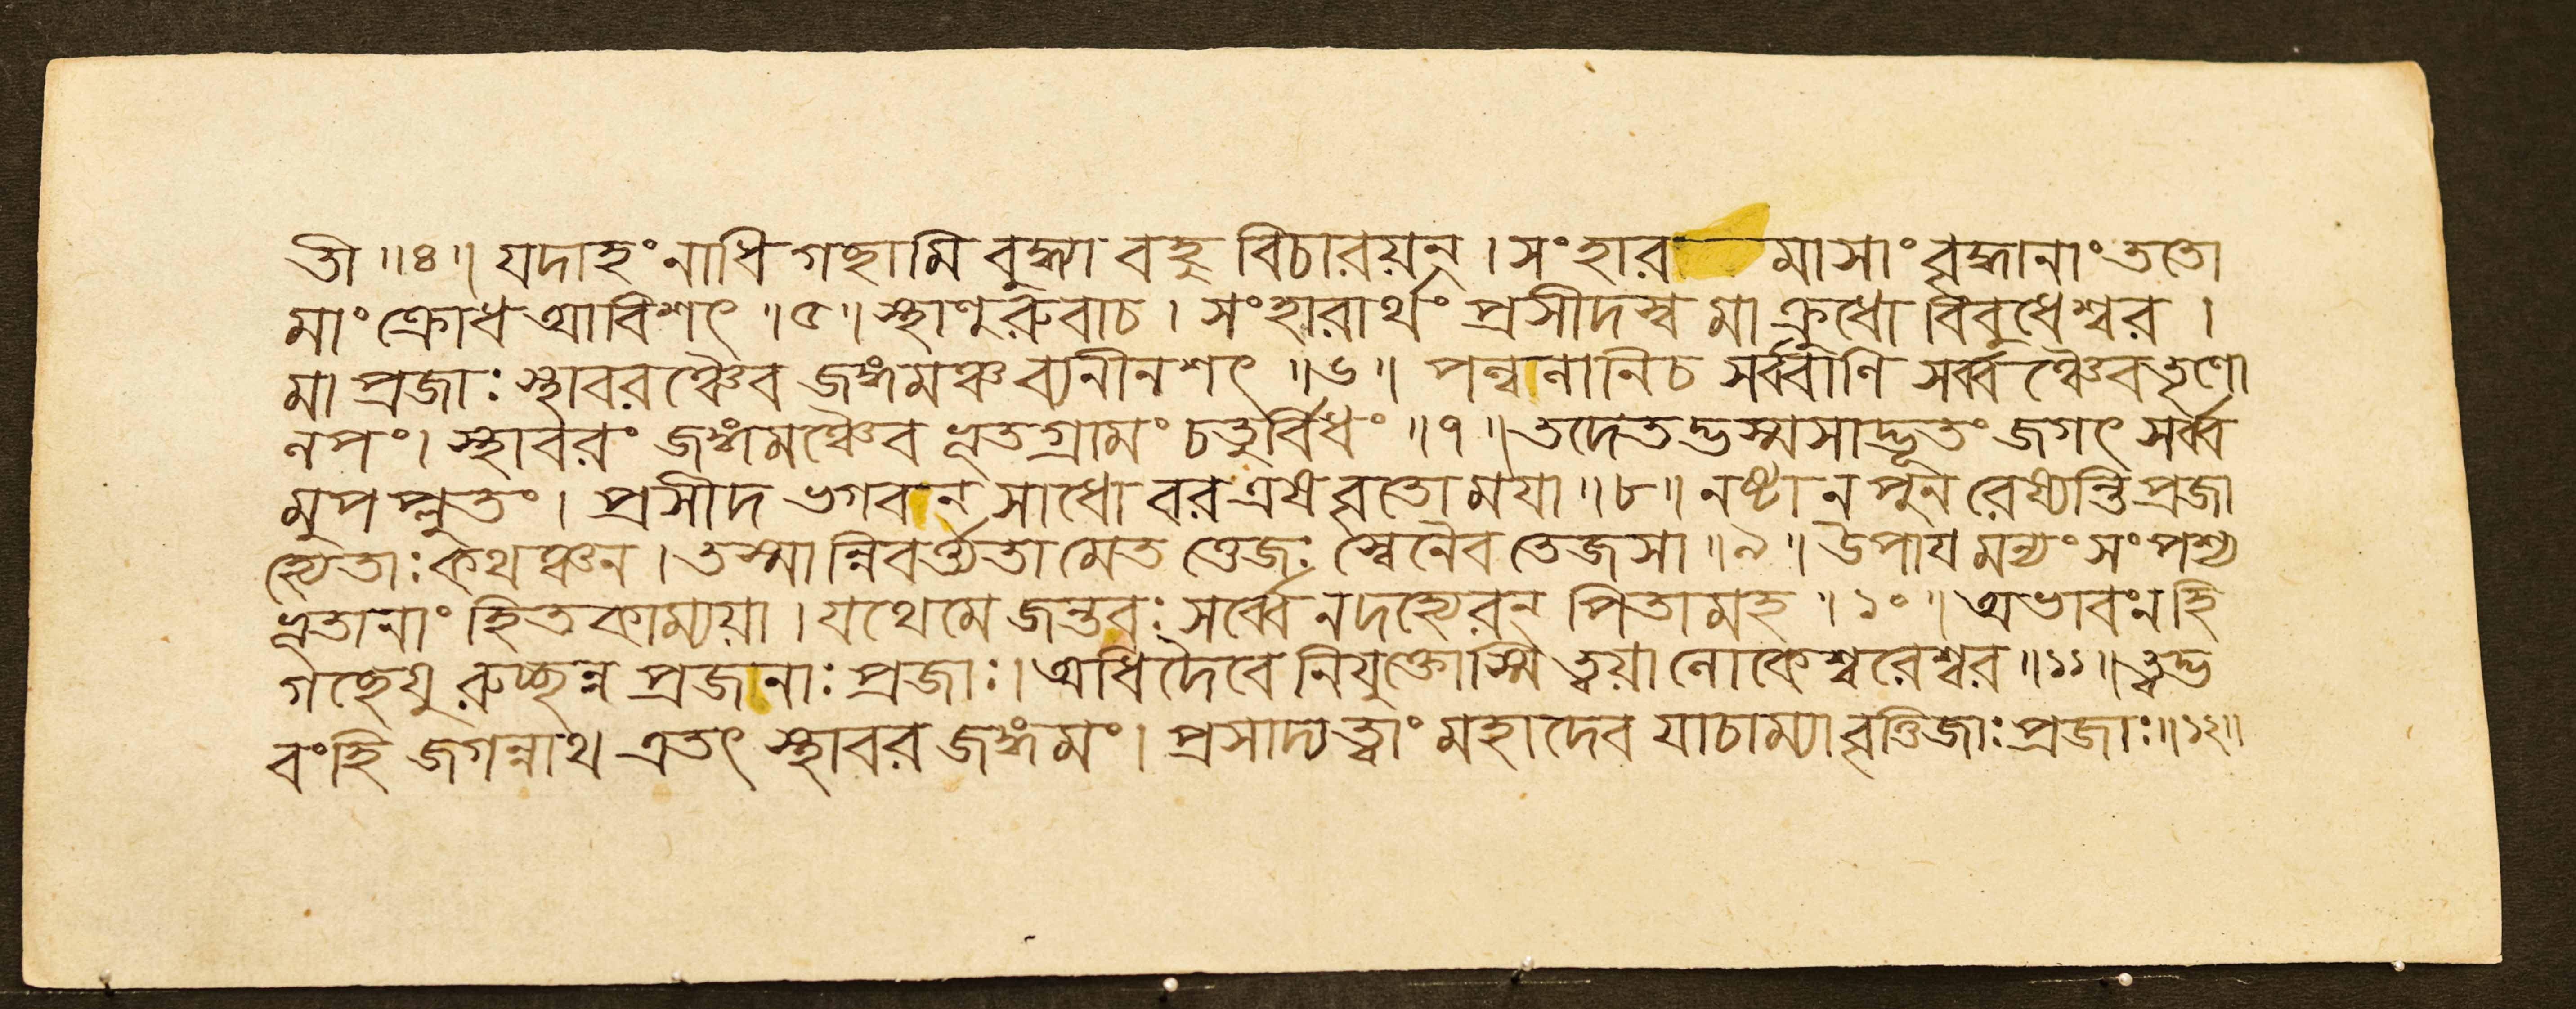 তী ॥ ৪ ॥ যদাহং নাধি গছামি বুদ্ধ্যা বহু বিচারয়ন্ । সংহার মাসাং বৃদ্ধানাং ততো
মাং ক্রোধ আবিশৎ ॥ ৫ ॥ স্থাণুরুবাচ । সংহারার্থং প্রসীদস্ব মা ক্রুধো বিবুধেশ্বর ।
মা প্রজাঃ স্থাবরঞ্চৈব জঙ্গমঞ্চ ব্যনীনশৎ ॥ ৬ ॥ পল্বলানিচ সর্ব্বাণি সর্ব্বঞ্চৈব তৃণো
লপং । স্থাবরং জঙ্গমঞ্চৈব ভূতগ্রামং চতুর্বিধং ॥ ৭ ॥ তদেতদ্ভস্মসাদ্ভূতং জগৎ সর্ব্ব
মুপপ্লুতং । প্রসীদ ভগবন্ সাধো বর এষ বৃতো ময়া ॥ ৮ ॥ নষ্টা ন পুন রেষ্যন্তি প্রজা
হ্যেতাঃ কথঞ্চন । তস্মান্নিবর্ত্ত্যতা মেত ত্তেজঃ স্বেনৈব তেজসা ॥ ৯ ॥ উপায মন্যং সংপশ্য
ভূতানাং হিতকাম্যয়া । যথেমে জন্তবঃ সর্ব্বে নদহ্যেরন্ পিতামহ । ১০ ॥ অভাবংনহি
গছেযু রুচ্ছন্ন প্রজনাঃ প্রজাঃ । অধিদৈবে নিযুক্তোস্মি ত্বয়া লোকেশ্বরেশ্বর ॥ ১১ ॥ ত্বদ্ভ
বংহি জগন্নাথ এতৎ স্থাবর জঙ্গমং । প্রসাদ্য ত্বাং মহাদেব যাচাম্যাবৃত্তিজাঃ প্রজাঃ ॥ ১২ ॥